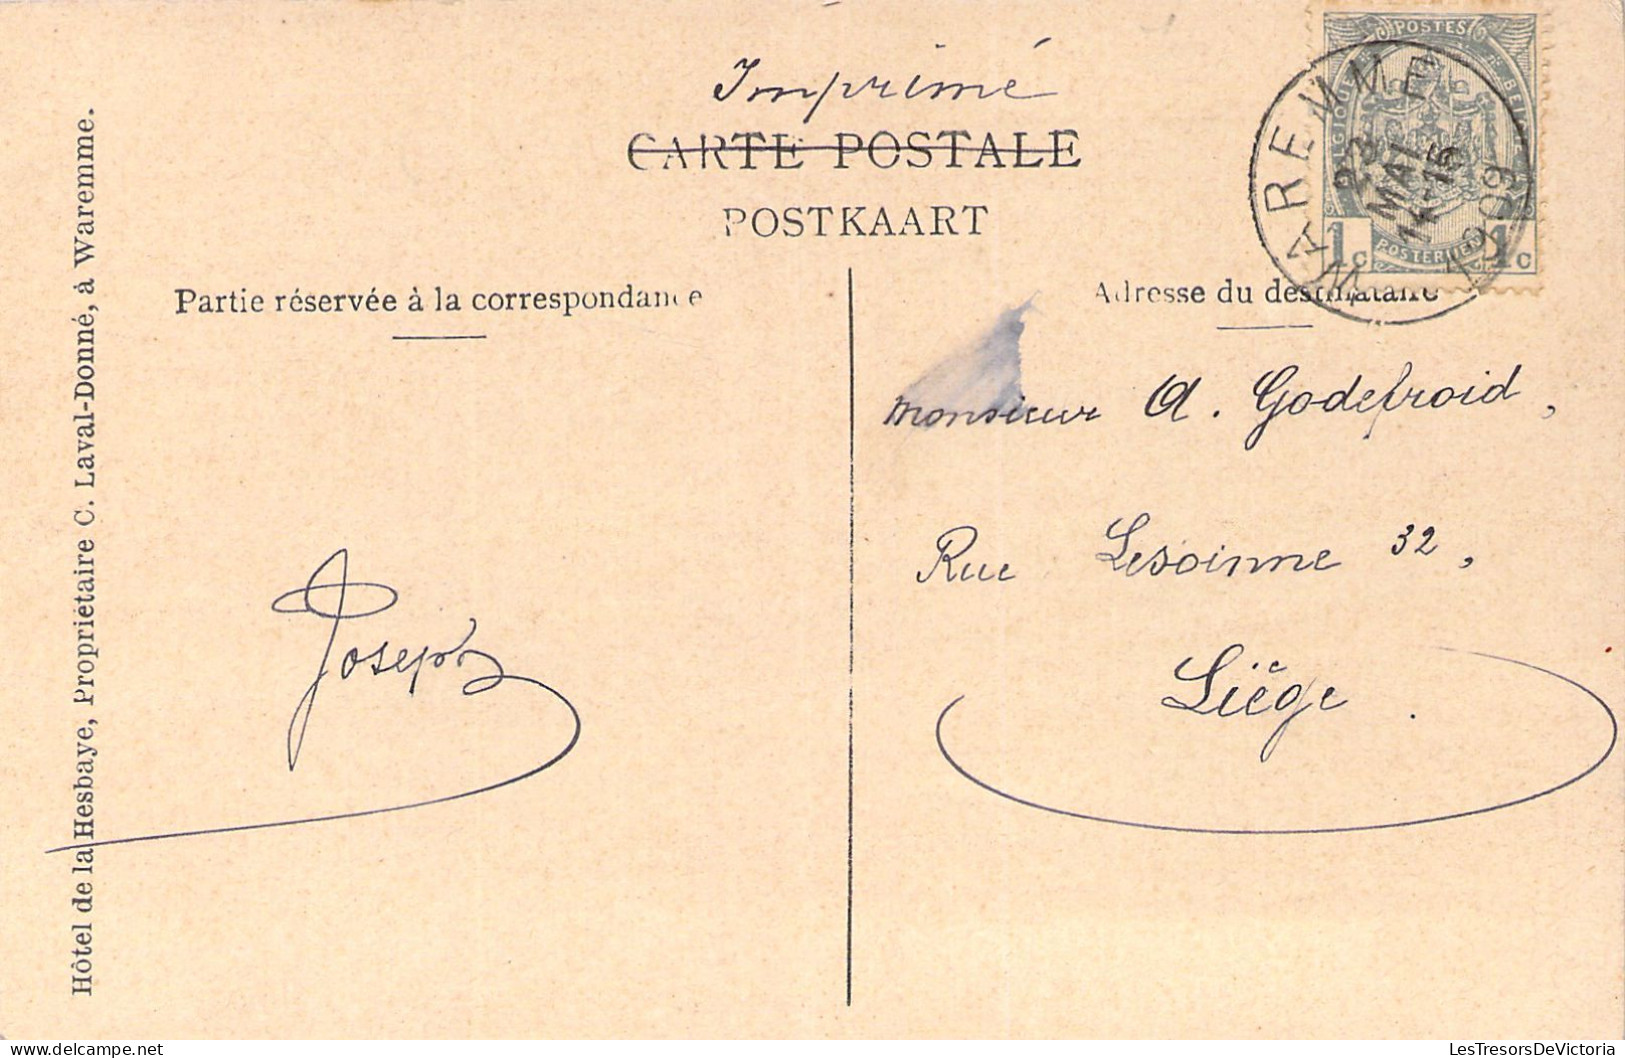 Imprimé
CARTE POSTALE
POSTKAART
Partie réservée à la correspondance
Adresse du destinataire
POSTES
BELGIQUE BELGIE
POSTERIJEN
1c 1c
WAREMME
23
MAI
14-15
1909
Monsieur A. Godefroid,
Rue Lesoinne 32,
Liège.
Joseph
Hôtel de la Hesbaye, Propriétaire C. Laval-Donné, à Waremme.
LesTresorsDeVictoria